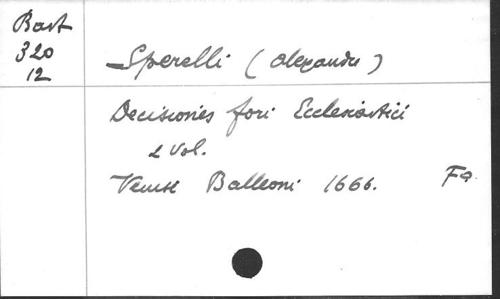 Bast
320
12
Sperelli (Alexandre)
Decisiones fori Ecclesiastici
2 Vol.
Venise Balleoni 1666. Fo.